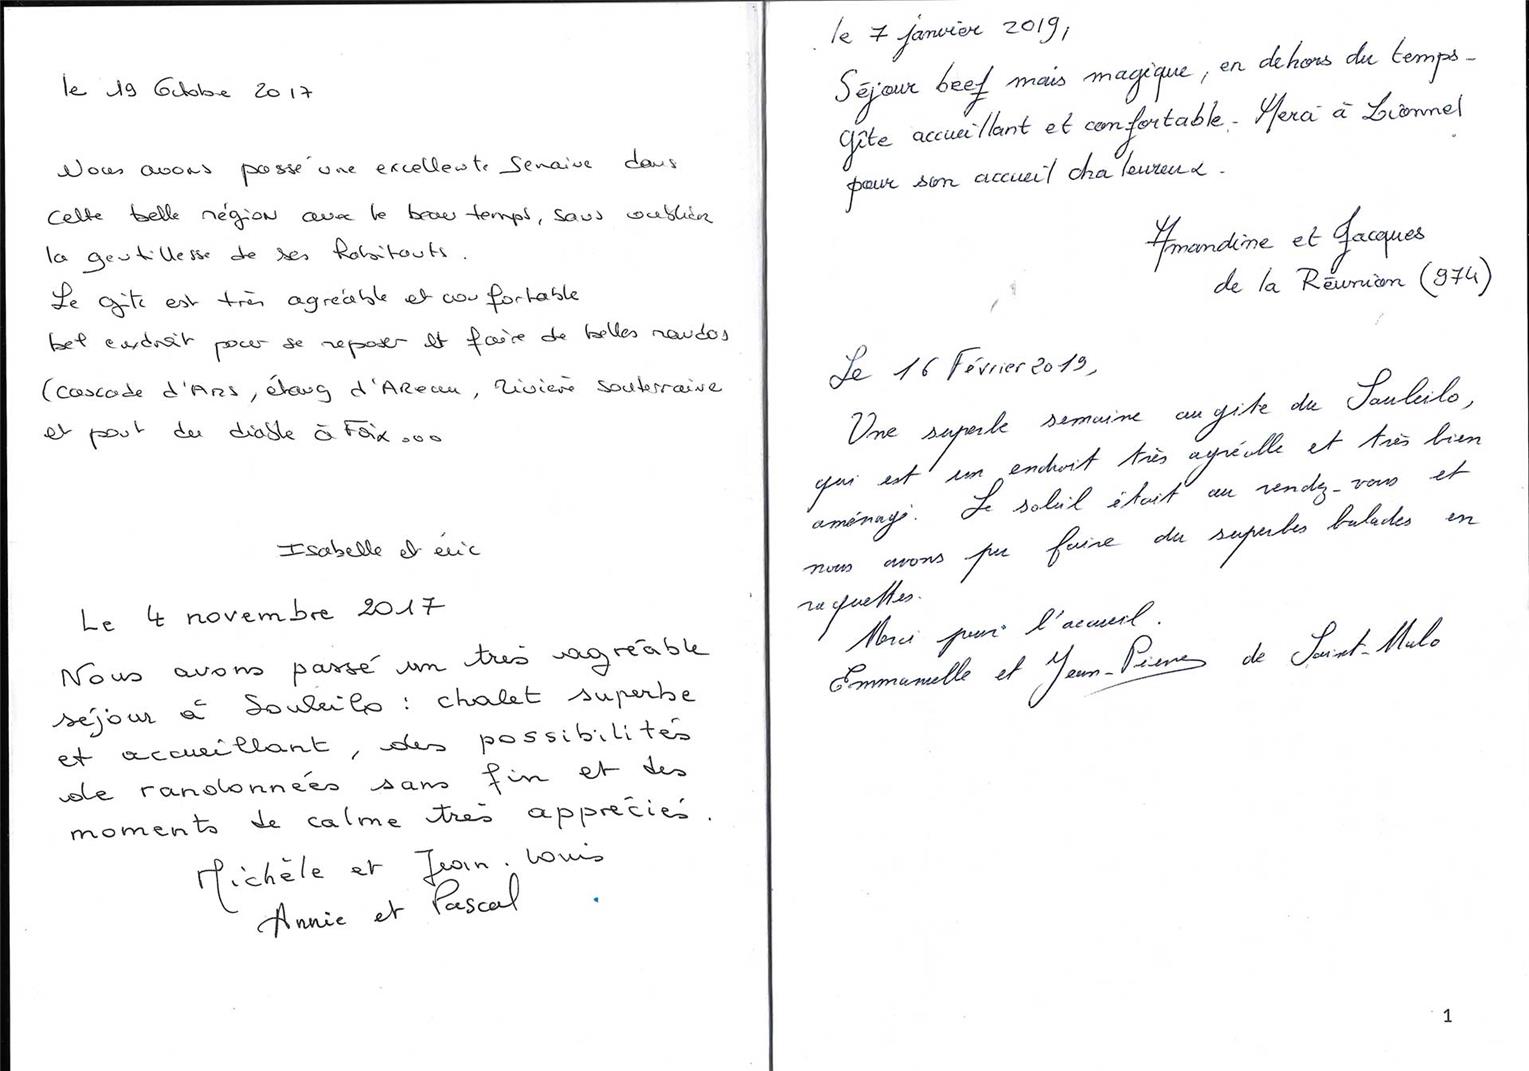 le 19 Octobre 2017
Nous avons passé une excellente semaine dans
cette belle région avec le beau temps, sans oublier
la gentillesse de ses habitants.
Le gîte est très agréable et confortable
bel endroit pour se reposer et faire de belles randos
(cascade d'Ars, étang d'Areau, rivière souterraine
et pont du diable à Foix...
Isabelle et éric
Le 4 novembre 2017
Nous avons passé un très agréable
séjour à Souleilo : chalet superbe
et accueillant, des possibilités
de randonnées sans fin et des
moments de calme très appréciés.
Michèle et Jean-Louis
Annie et Pascal
le 7 janvier 2019,
Séjour beef mais magique, en dehors du temps -
Gîte accueillant et confortable - Merci à Lionnel
pour son accueil chaleureux.
Amandine et Jacques
de la Réunion (974)
Le 16 Février 2019,
Une superbe semaine au gite du Souleilo,
qui est un endroit très agréable et très bien
aménagé. Le soleil était au rendez-vous et
nous avons pu faire du superbes balades en
raquettes.
Merci pour l'accueil.
Emmanuelle et Jean-Pierre de Saint-Malo
1